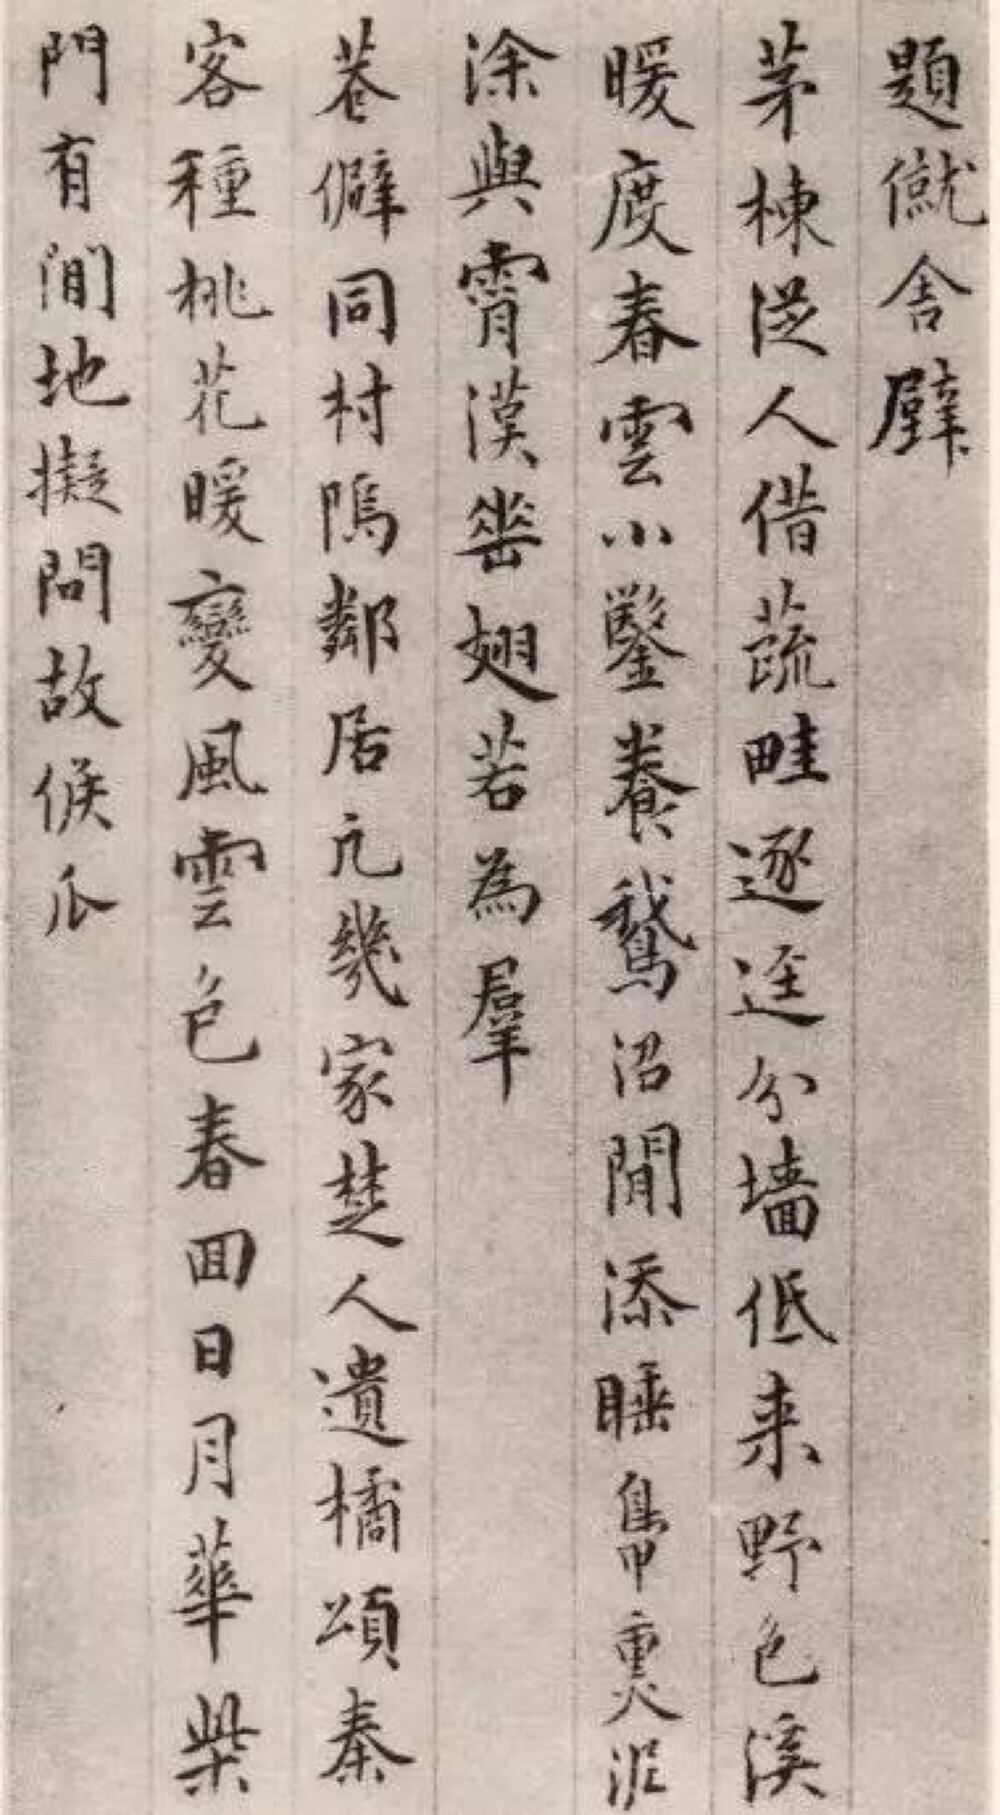 題僦舍壁
茅棟從人借蔬畦逐逕分墙低来野色溪
暖度春雲小鑿養鵞沼閒添睡鳧熏泥
塗與霄漢鎩翅若為羣
巷僻同村隖鄰居凢幾家楚人遺橘頌秦
客種桃花暖變風雲色春囬日月華柴
門有閒地擬問故侯瓜